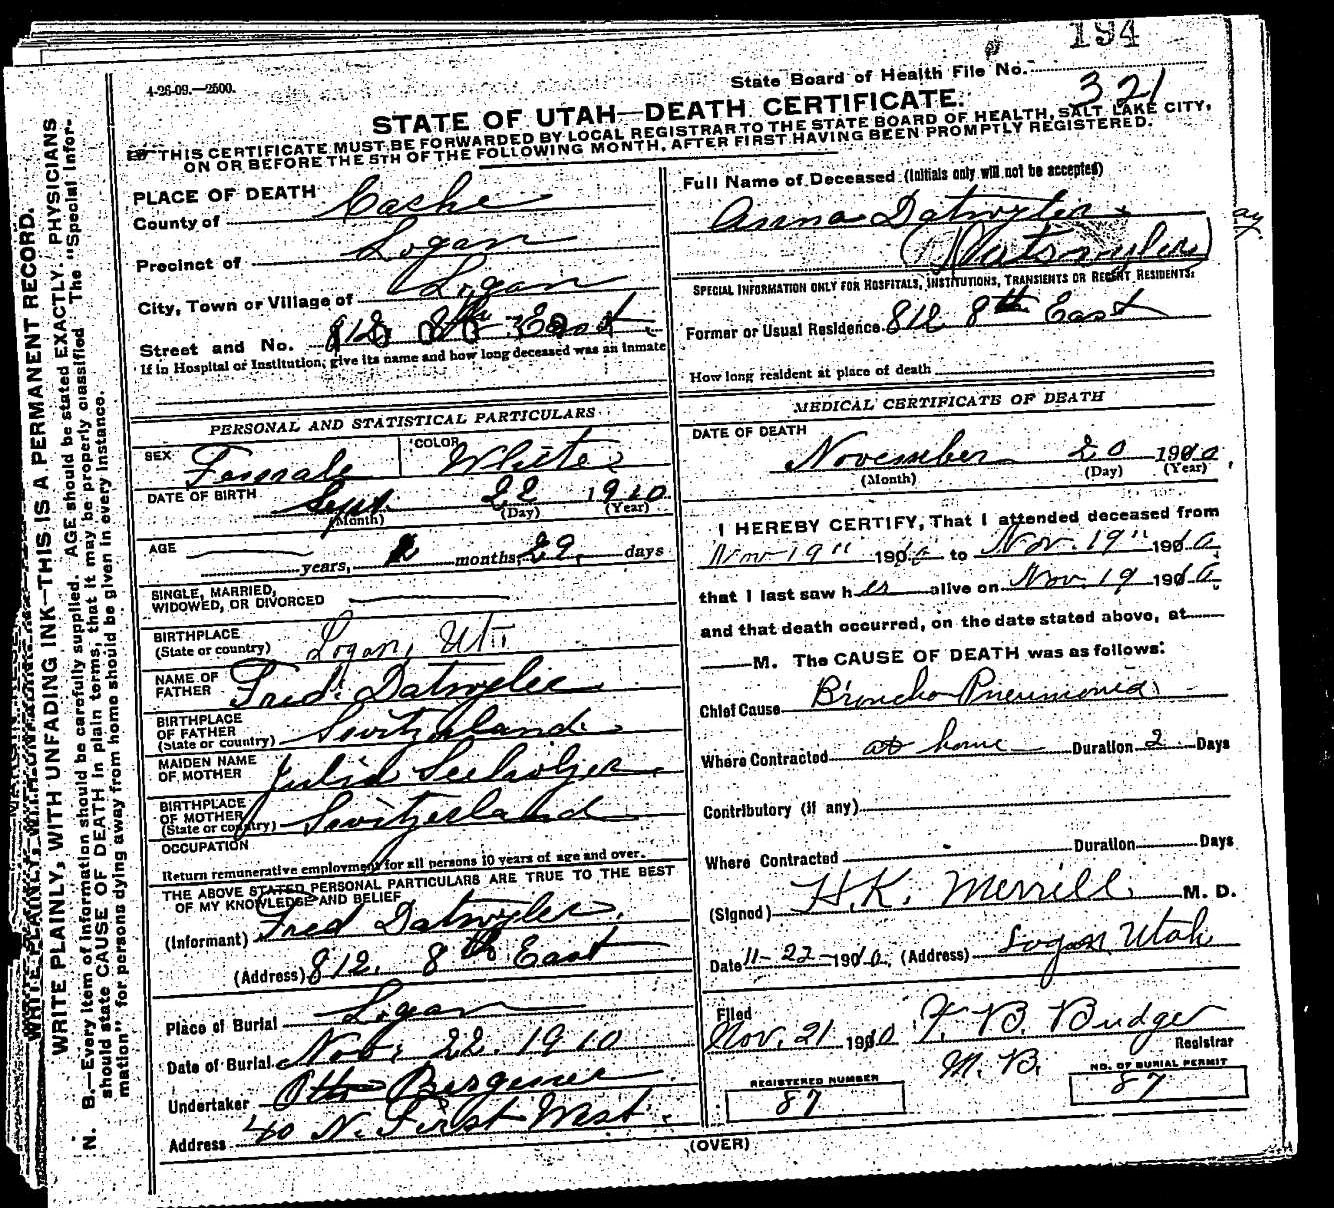 194
4-26-09.—2500.
State Board of Health File No. 321
STATE OF UTAH—DEATH CERTIFICATE.
THIS CERTIFICATE MUST BE FORWARDED BY LOCAL REGISTRAR TO THE STATE BOARD OF HEALTH, SALT LAKE CITY,
ON OR BEFORE THE 5TH OF THE FOLLOWING MONTH, AFTER FIRST HAVING BEEN PROMPTLY REGISTERED.
PLACE OF DEATH
County of Cashe
Precinct of Logan
City, Town or Village of Logan
Street and No. 812 8th East
If in Hospital or Institution, give its name and how long deceased was an inmate
PERSONAL AND STATISTICAL PARTICULARS
SEX Female COLOR White
DATE OF BIRTH Sept. 22 1910
(Month) (Day) (Year)
AGE years, months, 29 days
SINGLE, MARRIED,
WIDOWED, OR DIVORCED
BIRTHPLACE
(State or country) Logan, Ut.
NAME OF
FATHER Fred Datwyler
BIRTHPLACE
OF FATHER
(State or country) Switzerland
MAIDEN NAME
OF MOTHER Julia Seeholzer
BIRTHPLACE
OF MOTHER
(State or country) Switzerland
OCCUPATION
Return remunerative employment for all persons 10 years of age and over.
THE ABOVE STATED PERSONAL PARTICULARS ARE TRUE TO THE BEST
OF MY KNOWLEDGE AND BELIEF
(Informant) Fred Datwyler
(Address) 812. 8th East
Place of Burial Logan
Date of Burial Nov. 22. 1910
Undertaker Otto
Address 40 N. First West.
Full Name of Deceased (Initials only will not be accepted)
Anna Datwyler
SPECIAL INFORMATION ONLY FOR HOSPITALS, INSTITUTIONS, TRANSIENTS OR RECENT RESIDENTS.
Former or Usual Residence 812 8th East
How long resident at place of death
MEDICAL CERTIFICATE OF DEATH
DATE OF DEATH
November 20 1910
(Month) (Day) (Year)
I HEREBY CERTIFY, That I attended deceased from
Nov 19" 1910 to Nov. 19" 1910
that I last saw her alive on Nov. 19 1910
and that death occurred, on the date stated above, at
M. The CAUSE OF DEATH was as follows:
Chief Cause Broncho Pneumonia
Where Contracted at home Duration 2 Days
Contributory (if any)
Where Contracted Duration Days
(Signed) H. K. Merrill M. D.
Date 11-22-1910. (Address) Logan, Utah
Filed
Nov. 21 1910 F. B. Budge
Registrar
REGISTERED NUMBER
87
NO. OF BURIAL PERMIT
87
(OVER)
WRITE PLAINLY, WITH UNFADING INK—THIS IS A PERMANENT RECORD.
N. B.—Every item of information should be carefully supplied. AGE should be stated EXACTLY. PHYSICIANS
should state CAUSE OF DEATH in plain terms, that it may be properly classified. The "Special Infor-
mation" for persons dying away from home should be given in every instance.